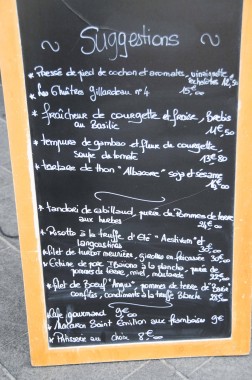 ~ Suggestions ~
* Pressé de pied de cochon et aromates, vinaigrette
échalottes
* Les 6 huîtres Gillardeau n°4 15,00
* fraîcheur de courgette et fraise, Brebis
au Basilic 11€,50
* tempura de gambas et fleur de courgette,
Soupe de tomate 13€,80
* tartare de thon "Albacore" soja et sésame
* tandori de cabillaud, purée de Pommes de terre
aux herbes
* Risotto à la truffe d'Eté "Aestivum" et
langoustines
* filet de turbot meunière, girolles en fricassée
* Echine de porc Ibérico à la planche, purée de
pommes de terre, miel, moutarde
* filet de Boeuf "Angus", pommes de terre de
confites, condiments à la truffe Blanche
* Café gourmand 9€
* Macaron Saint Emilion aux framboises 9€
* Pâtisserie au choix 8€